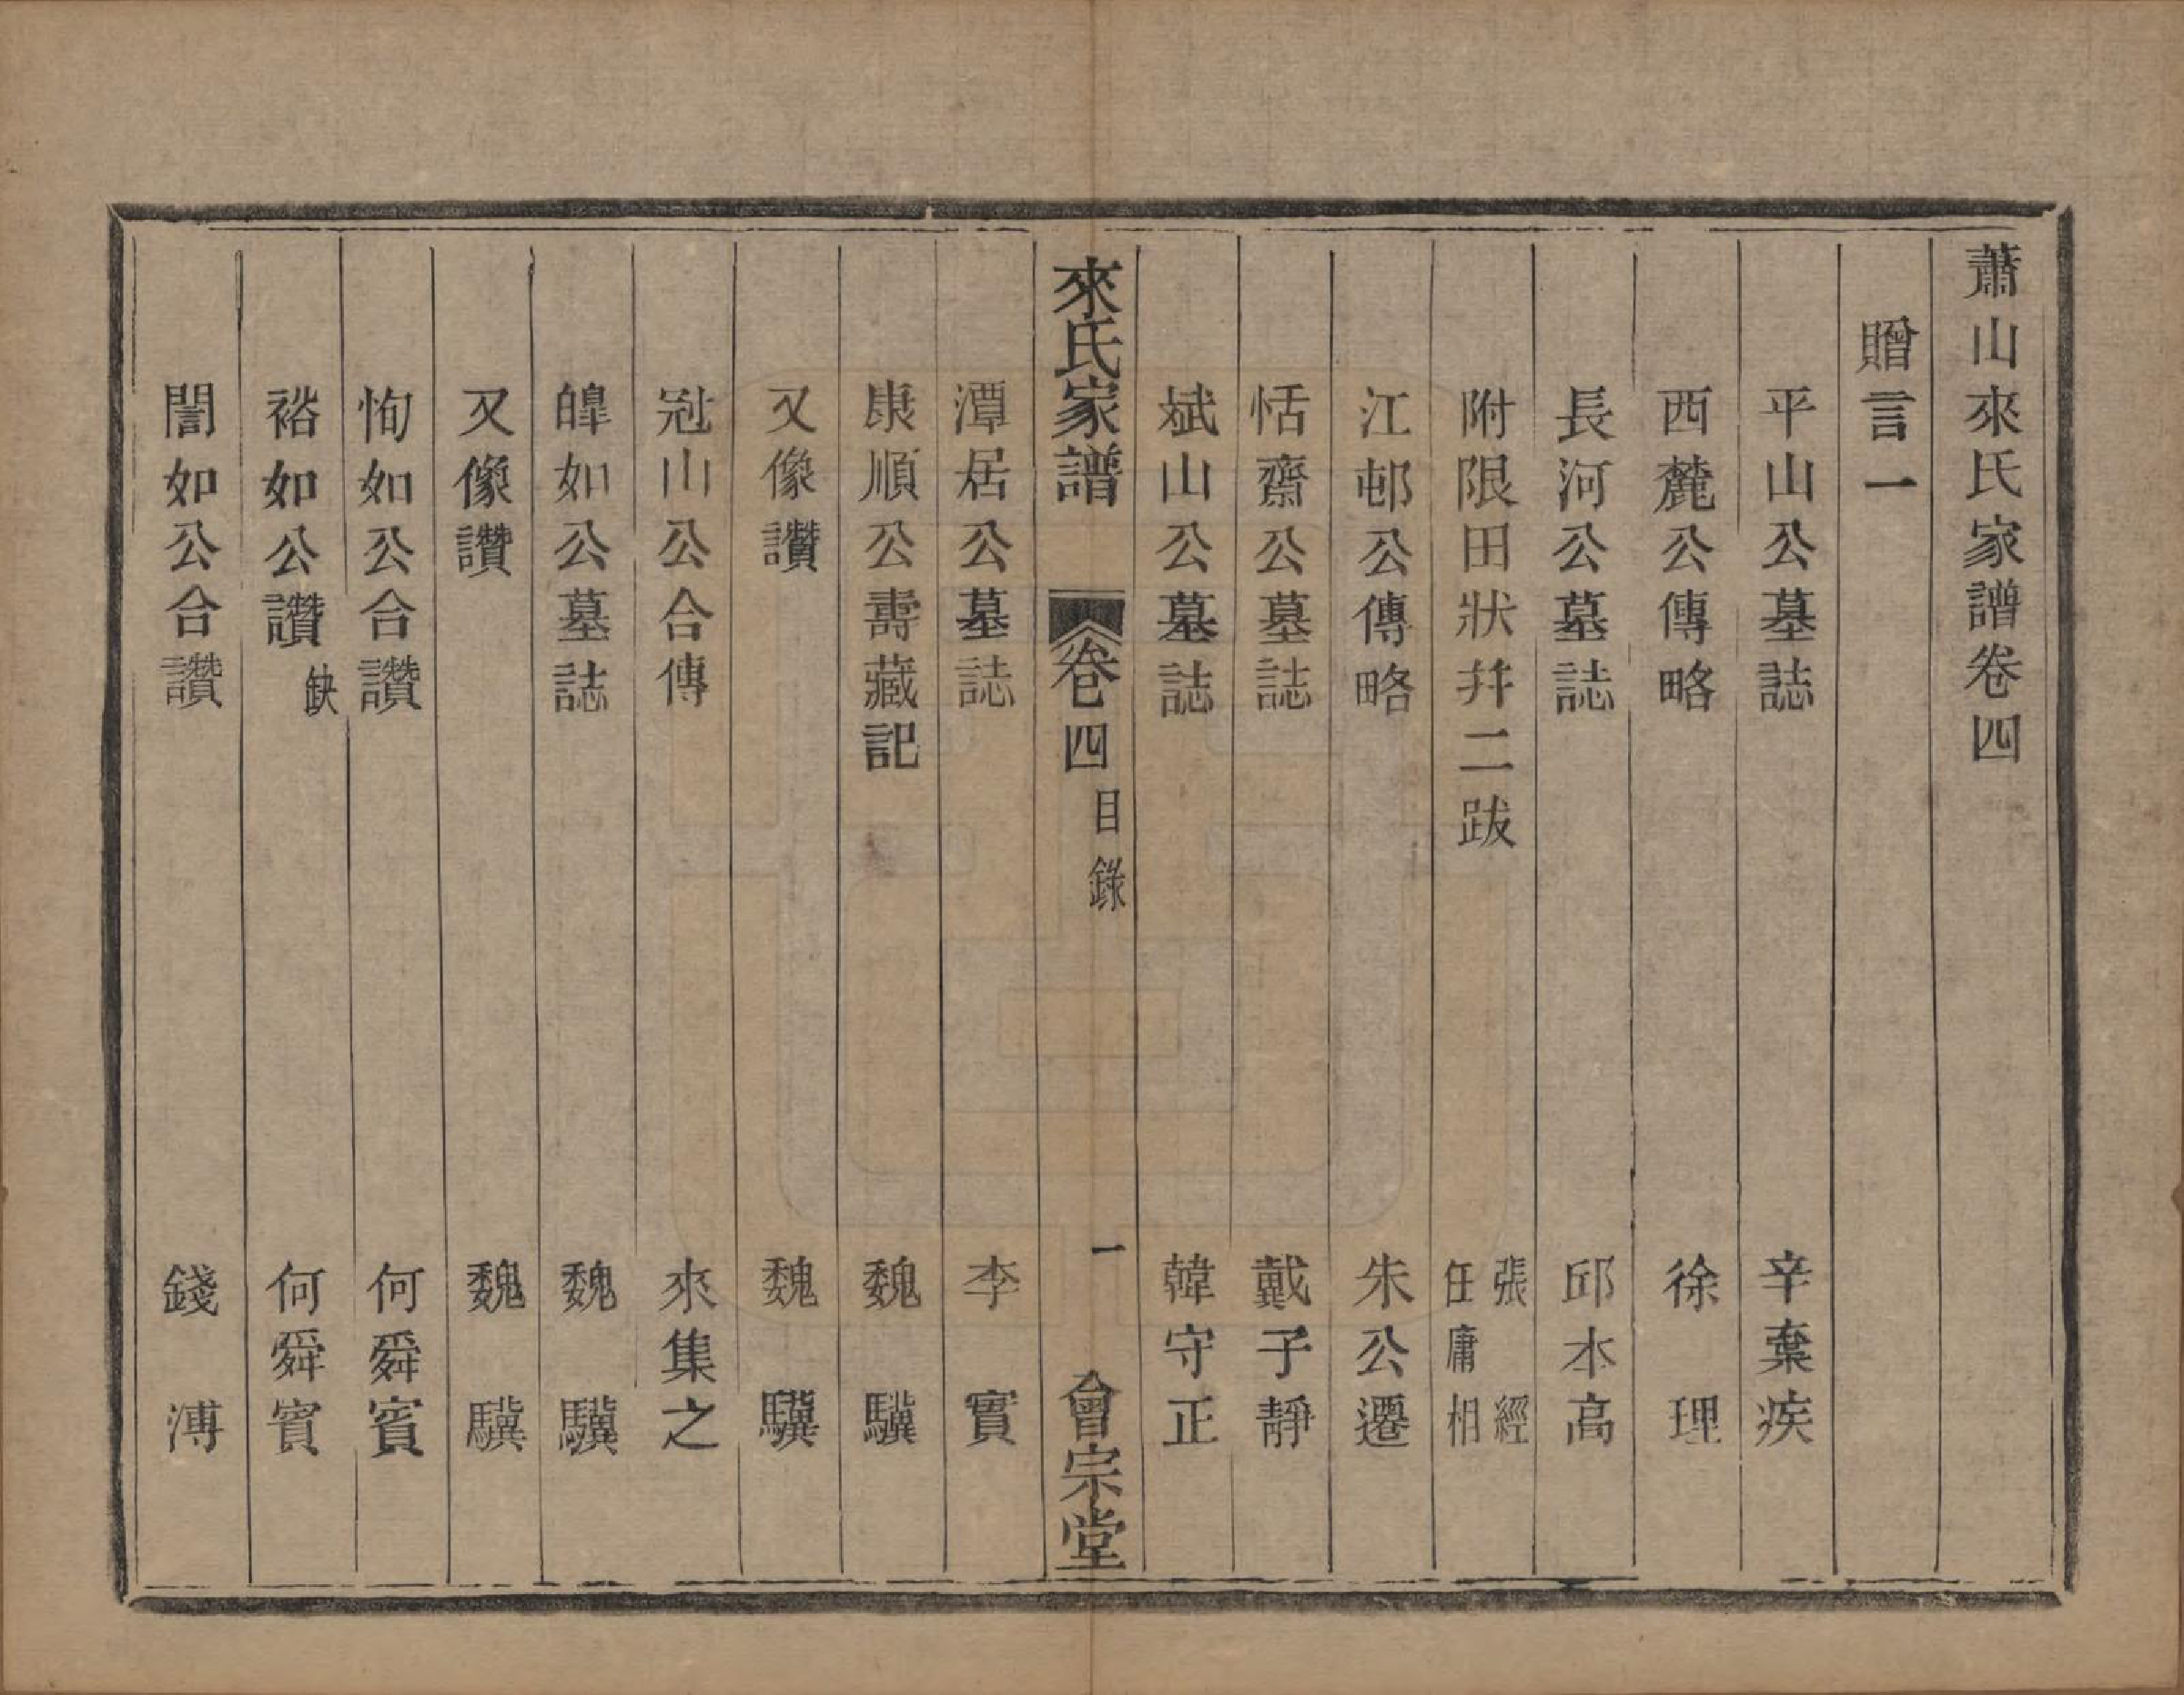 蕭山來氏家譜卷四
贈言一
平山公墓誌 辛棄疾
西麓公傳略 徐理
長河公墓誌 邱本高
附限田狀幷二跋 張經 任庸相
江邨公傳略 朱公遷
恬齋公墓誌 戴子靜
斌山公墓誌 韓守正
來氏家譜 卷四 目錄 一 會宗堂
潭居公墓誌 李實
康順公壽藏記 魏驥
又像讚 魏驥
冠山公合傳 來集之
皥如公墓誌 魏驥
又像讚 魏驥
恂如公合讚 何舜賓
裕如公讚缺 何舜賓
誾如公合讚 錢溥